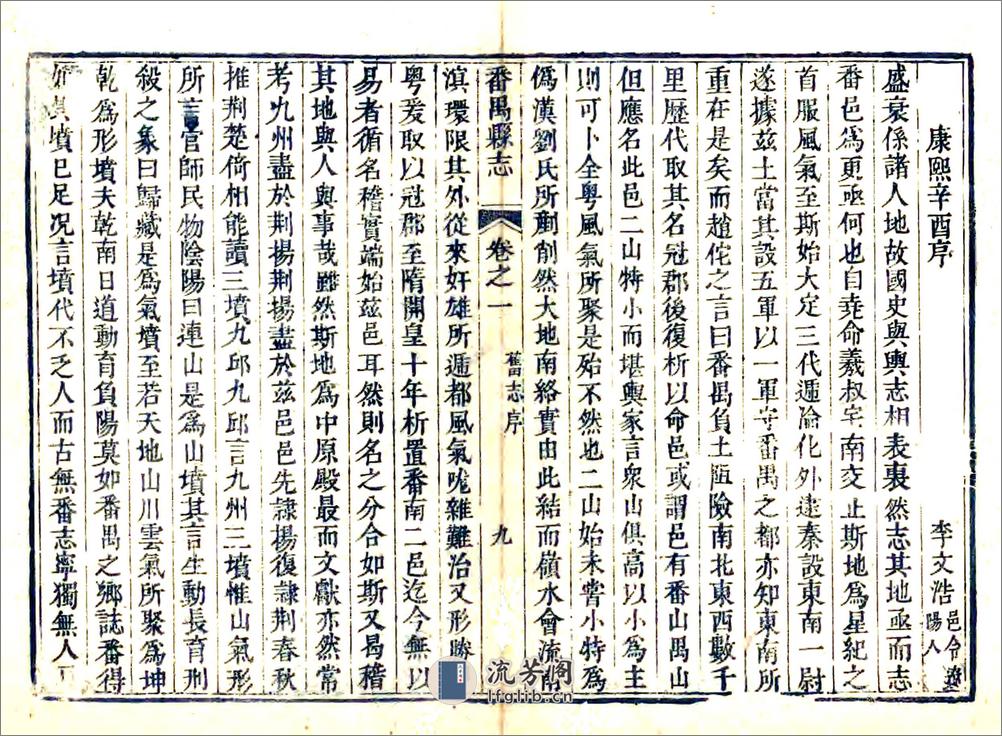 康熙辛酉序
李文浩邑令
陽人
盛衰係諸人地故國史與輿志相表裏然志其地亟而志
番邑為更亟何也自堯命羲叔宅南交止斯地為星紀之
首服風氣至斯始大定三代遞淪化外逮秦設東南一尉
遂據茲土當其設五軍以一軍守番禺之都亦知東南所
重在是矣而趙佗之言曰番禺負土阻險南北東西數千
里歷代取其名冠郡後復析以命邑或謂邑有番山禺山
但應名此邑二山特小而堪輿家言眾山俱高以小為主
則可卜全粵風氣所聚是殆不然也二山始未嘗小特為
偽漢劉氏所劃削然大地南絡實由此結而嶺水會流
番禺縣志 卷之一 舊志序 九
滇環限其外從來奸雄所遞都風氣嚨雜難治又形勝
粵爰取以冠郡至隋開皇十年析置番南二邑迄今無以
易者循名稽實端始茲邑耳然則名之分合如斯又曷稽
其地與人與事哉雖然斯地為中原殿最而文獻亦然常
考九州盡於荆揚荆揚盡於茲邑邑先隸揚復隸荆春秋
推荆楚倚相能讀三墳九邱九邱言九州三墳惟山氣形
所言官師民物陰陽曰連山是為山墳其言生動長育刑
殺之象曰歸藏是為氣墳至若天地山川雲氣所聚為坤
乾為形墳夫乾南日道動育負陽莫如番禺之鄉誌番得
如墳已足況言墳代不乏人而古無番志寧獨無人
流芳閣
lfglib.cn